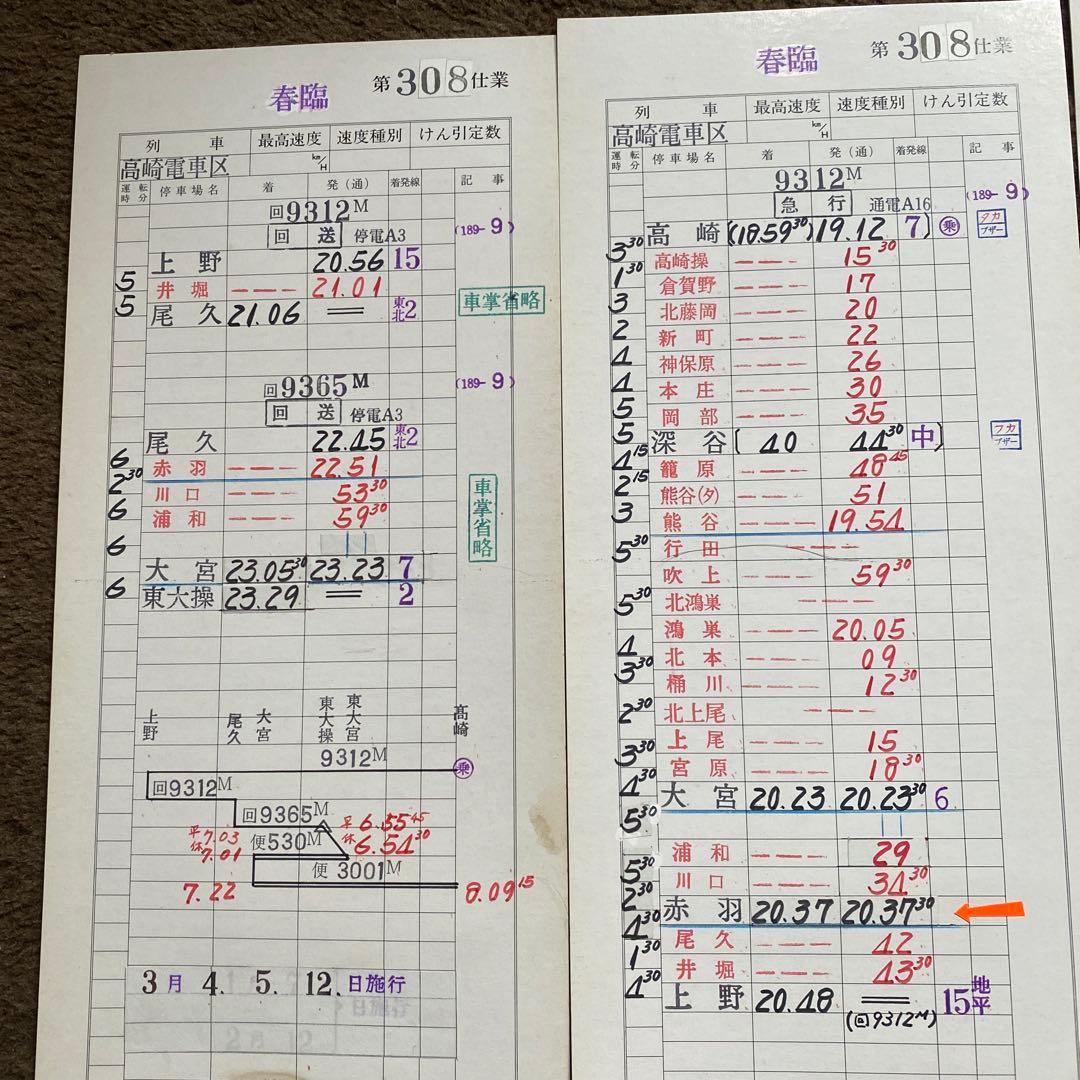 春臨 第308仕業
列車 最高速度 速度種別 けん引定数
高崎電車区 km/H
運転時分 停車場名 着 発(通) 着発線 記事
回9312M
回送 停電A3 (189-9)
上野 20.56 15
5 井堀 21.01
5 尾久 21.06 = 東北2 車掌省略
回9365M (189-9)
回送 停電A3
尾久 22.45 東北2
6 赤羽 22.51
2 30 川口 53 30
6 浦和 59 30 車掌省略
6 大宮 23.05 30 23.23 7
6 東大操 23.29 = 2
上野 尾久 大宮 東大操 東大宮 高崎
9312M 乗
回9312M
回9365M
平7.03 休7.01 便530M 平6.55 45 休6.54 30
便3001M
7.22 8.09 15
3月 4. 5. 12. 日施行
春臨 第308仕業
列車 最高速度 速度種別 けん引定数
高崎電車区 km/H
運転時分 停車場名 着 発(通) 着発線 記事
9312M
急行 通電A16 (189-9)
高崎 (18.59 30) 19.12 7) 乗 タカ ブザー
3 30 高崎操 15 30
1 30 倉賀野 17
3 北藤岡 20
2 新町 22
4 神保原 26
4 本庄 30
5 岡部 35
5 深谷 (40 44 30 中) フカ ブザー
4 15 籠原 48 45
2 15 熊谷(タ) 51
3 熊谷 19.54
行田
5 30 吹上 59 30
北鴻巣
5 30 鴻巣 20.05
4 北本 09
3 30 桶川 12 30
北上尾
2 30 上尾 15
3 30 宮原 18 30
4 30 大宮 20.23 20.23 30 6
5 30 浦和 29
5 30 川口 34 30
2 30 赤羽 20.37 20.37 30
4 30 尾久 42
1 30 井堀 43 30
4 30 上野 20.48 = 15 地平
(回9312M)